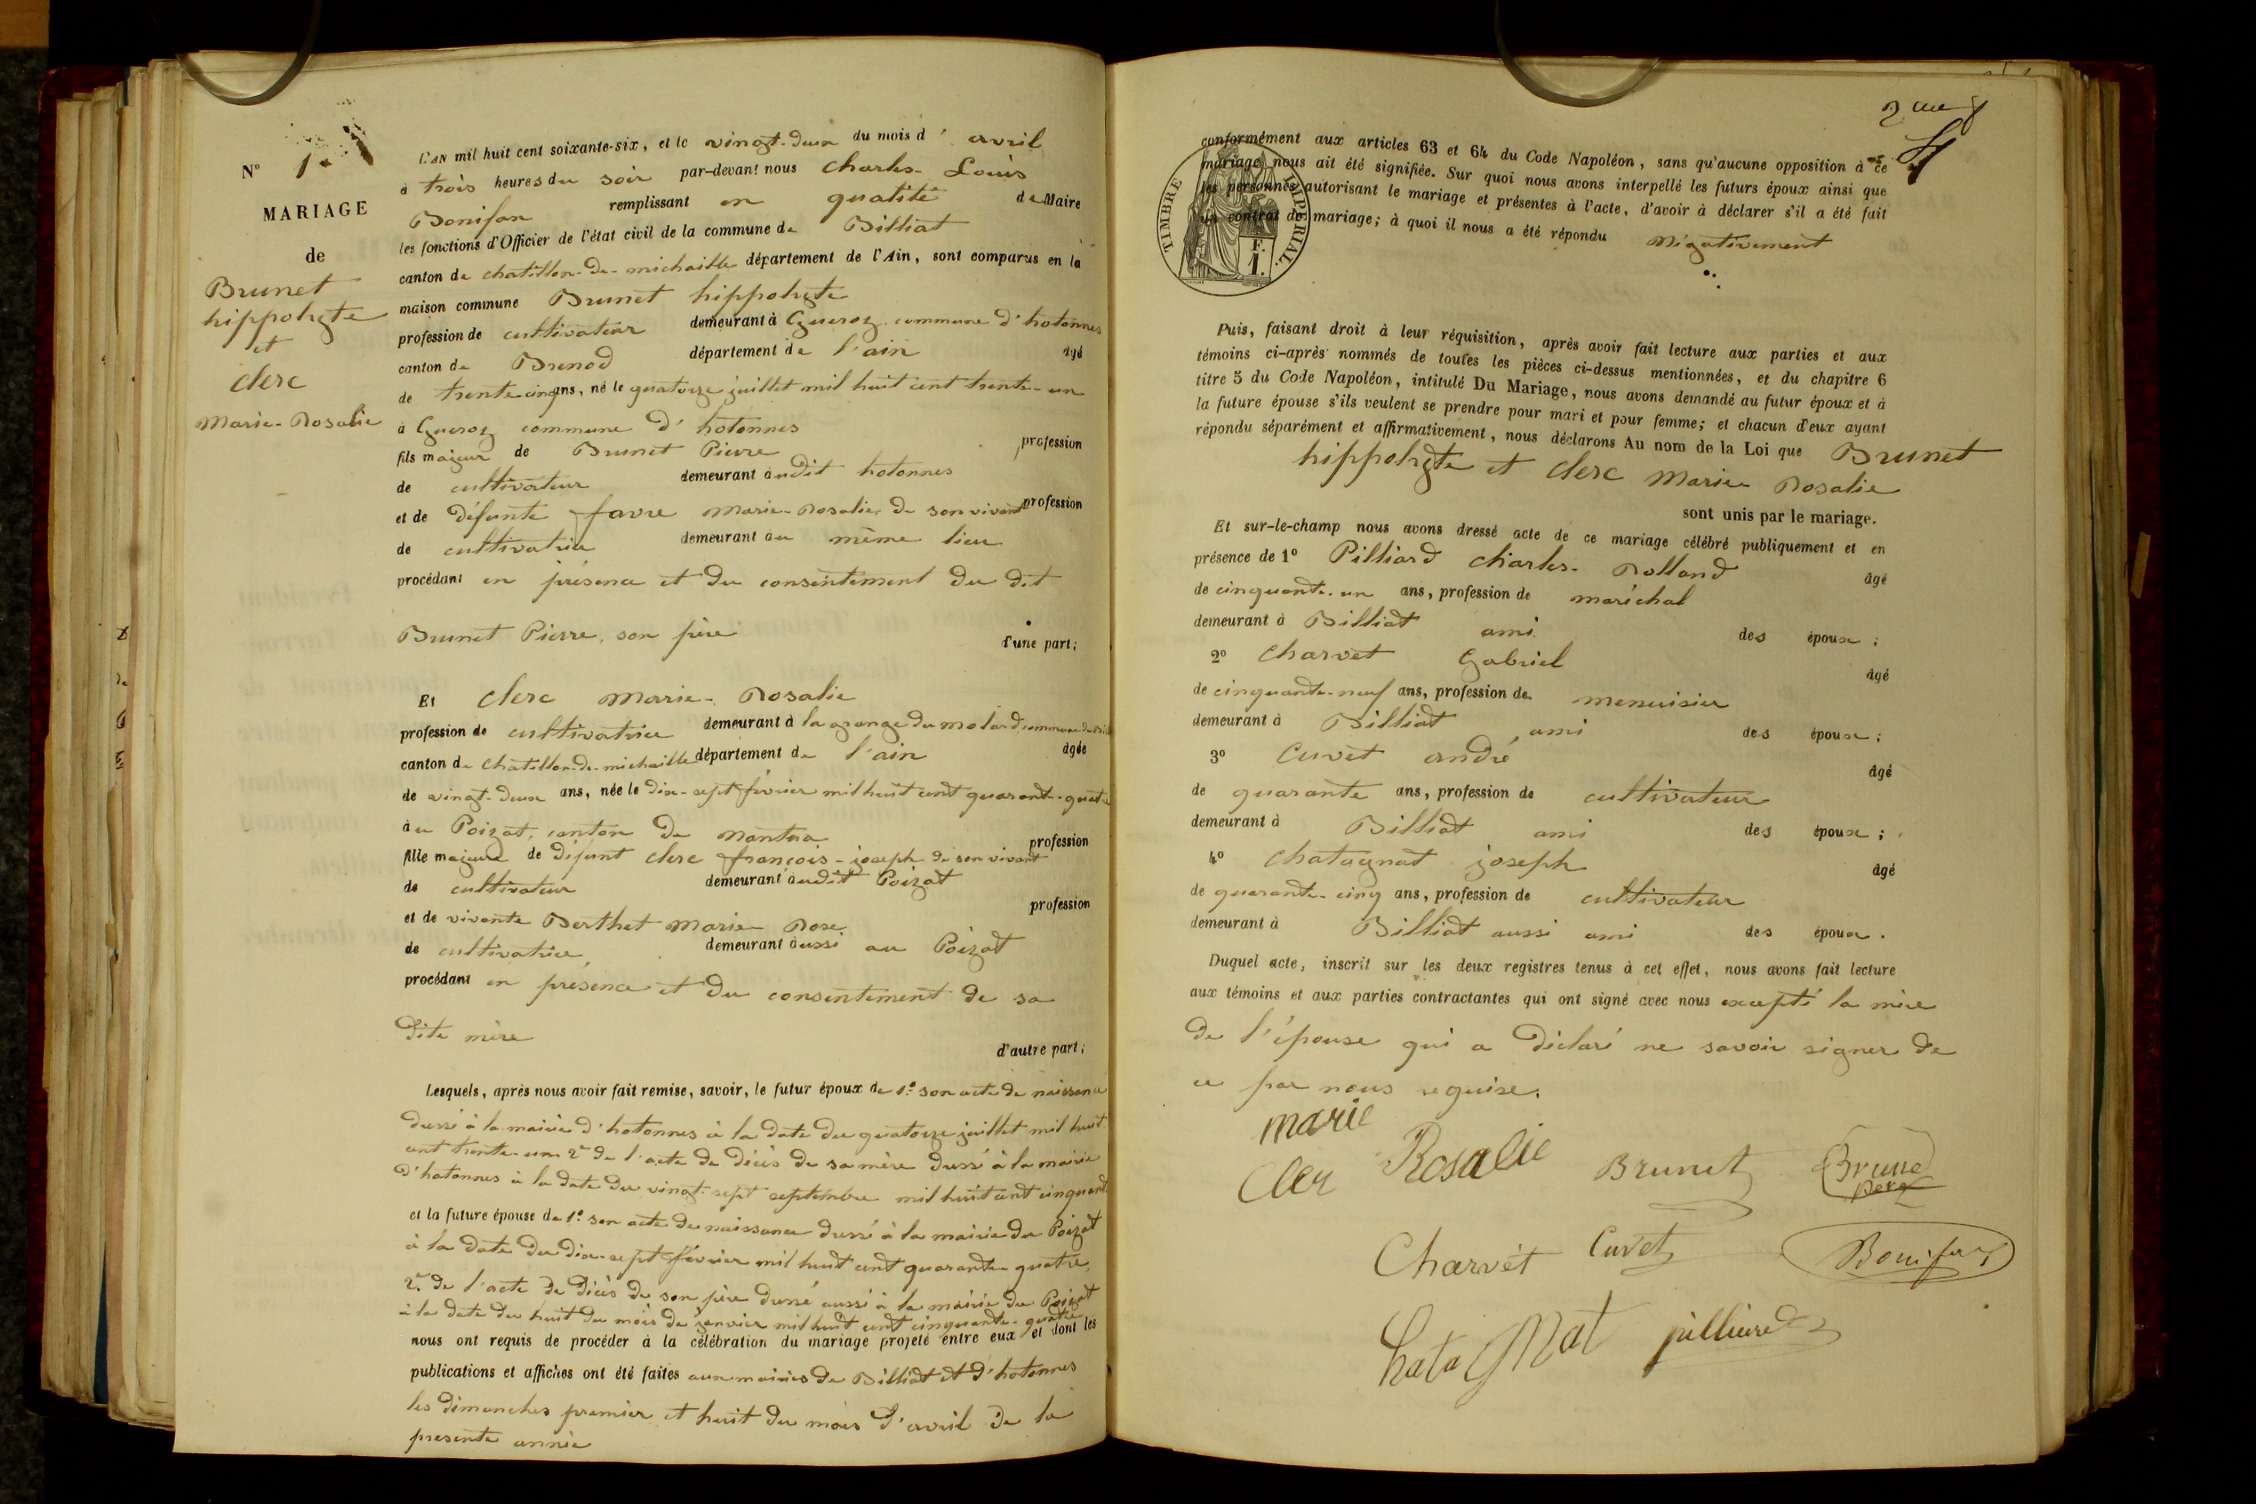 N° 1.
MARIAGE
de
Brunet
hippolyte
et
Clerc
Marie-Rosalie
L'AN mil huit cent soixante-six, et le vingt-deux du mois d'avril
à trois heures du soir par-devant nous Charles-Louis
Bonifax remplissant en qualité de Maire
les fonctions d'Officier de l'état civil de la commune de Billiat
canton de chatillon-de-michaille département de l'Ain, sont comparus en la
maison commune Brunet hippolyte
profession de cultivateur demeurant à commune d'hotonnes
canton de Brenod département de l'ain âgé
de trente cinq ans, né le quatorze juillet mil huit cent trente-un
à commune d'hotonnes
fils majeur de Brunet Pierre profession
de cultivateur demeurant audit hotonnes
et de défunte favre Marie-Rosalie, de son vivant profession
de cultivatrice demeurant au même lieu
procédant en présence et du consentement du dit
Brunet Pierre, son père d'une part;
Et Clerc Marie-Rosalie
profession de cultivatrice demeurant à la grange du molard commune de
canton de Chatillon-de-michaille département de l'ain âgée
de vingt-deux ans, née le dix-sept février mil huit cent quarante-quatre
au Poizat, canton de Nantua
fille majeure de défunt Clerc françois-joseph de son vivant profession
de cultivateur demeurant audit Poizat
et de vivante Berthet Marie Rose profession
de cultivatrice, demeurant aussi au Poizat
procédant en présence et du consentement de sa
dite mère d'autre part;
Lesquels, après nous avoir fait remise, savoir, le futur époux de 1° son acte de naissance
dressé à la mairie d'hotonnes à la date du quatorze juillet mil huit
cent trente-un 2° de l'acte de décès de sa mère dressé à la mairie
d'hotonnes à la date du vingt-sept septembre mil huit cent cinquante
et la future épouse de 1° son acte de naissance dressé à la mairie du Poizat
à la date du dix-sept février mil huit cent quarante-quatre,
2° de l'acte de décès de son père dressé aussi à la mairie du Poizat
à la date du huit du mois de janvier mil huit cent cinquante-quatre
nous ont requis de procéder à la célébration du mariage projeté entre eux et dont les
publications et affiches ont été faites aux mairies de Billiat et d'hotonnes
les dimanches premier et huit du mois d'avril de la
presente année
TIMBRE IMPERIAL.
F.
1.
conformément aux articles 63 et 64 du Code Napoléon, sans qu'aucune opposition à ce
mariage nous ait été signifiée. Sur quoi nous avons interpellé les futurs époux ainsi que
les personnes autorisant le mariage et présentes à l'acte, d'avoir à déclarer s'il a été fait
un contrat de mariage; à quoi il nous a été répondu Négativement
Puis, faisant droit à leur réquisition, après avoir fait lecture aux parties et aux
témoins ci-après nommés de toutes les pièces ci-dessus mentionnées, et du chapitre 6
titre 5 du Code Napoléon, intitulé Du Mariage, nous avons demandé au futur époux et à
la future épouse s'ils veulent se prendre pour mari et pour femme; et chacun d'eux ayant
répondu séparément et affirmativement, nous déclarons Au nom de la Loi que Brunet
hippolyte et Clerc Marie-Rosalie
sont unis par le mariage.
Et sur-le-champ nous avons dressé acte de ce mariage célébré publiquement et en
présence de 1° Pilliard Charles-Rolland âgé
de cinquante-un ans, profession de maréchal
demeurant à Billiat ami des époux;
2° Charvet Gabriel âgé
de cinquante-neuf ans, profession de menuisier
demeurant à Billiat, ami des époux;
3° Cuvet andré âgé
de quarante ans, profession de cultivateur
demeurant à Billiat ami des époux;
4° Chatagnat joseph âgé
de quarante-cinq ans, profession de cultivateur
demeurant à Billiat aussi ami des époux.
Duquel acte, inscrit sur les deux registres tenus à cet effet, nous avons fait lecture
aux témoins et aux parties contractantes qui ont signé avec nous excepté la mère
de l'épouse qui a déclaré ne savoir signer de
ce par nous requise.
marie
Cler Rosalie Brunet Brune
pere
Charvet Cuvet Bonifax
pilliard